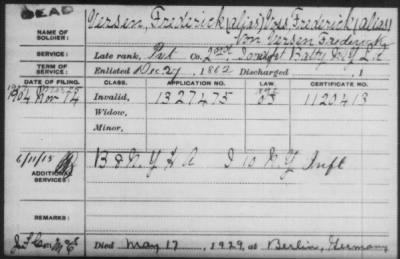 DEAD
NAME OF SOLDIER: Versen, Frederick (alias) Yers, Frederick (alias)
Von Versen Frederick
SERVICE: Late rank, Pvt Co. 2nd Batty NY L A
TERM OF SERVICE: Enlisted Dec 27, 1862 Discharged , 1
DATE OF FILING. CLASS. APPLICATION NO. LAW. CERTIFICATE NO.
1904 Nov 14 Invalid, 1327475 1120413
Widow,
Minor,
6/11/15 B & N.Y L A I 10 N.Y Inft
ADDITIONAL SERVICES:
REMARKS:
Died May 17, 1929, at Berlin, Germany